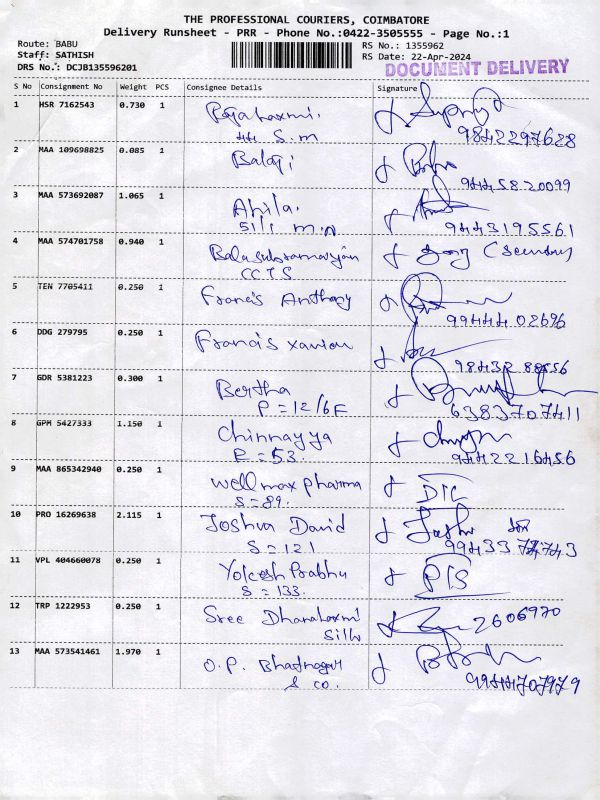 THE PROFESSIONAL COURIERS, COIMBATORE
Delivery Runsheet - PRR - Phone No.:0422-3505555 - Page No.:1
Route: BABU
Staff: SATHISH
DRS No.: DCJB135596201
RS No.: 1355962
RS Date: 22-Apr-2024
DOCUMENT DELIVERY
S No Consignment No Weight PCS Consignee Details Signature
1 HSR 7162543 0.730 1 Rajalaxmi.
44 S.m
9842297628
2 MAA 109698825 0.085 1 Balaji
9445820099
3 MAA 573692087 1.065 1 Ahila.
51/1 m.n
9443195561
4 MAA 574701758 0.940 1 Balasubramaniyan
CCTS
5 TEN 7705411 0.250 1 Francis Anthony
9944402696
6 DDG 279795 0.250 1 Francis xavier
9843288556
7 GDR 5381223 0.300 1 Bertha
P = 12/6F
6383707411
8 GPM 5427333 1.150 1 Chinnayya
R = 53.
9442216456
9 MAA 865342940 0.250 1 wellmax pharma DTC
S = 89.
10 PRO 16269638 2.115 1 Joshva David
S = 121
11 VPL 404660078 0.250 1 Yokesh Prabhu PTS
S = 133.
12 TRP 1222953 0.250 1 Sree Dhanalaxmi 2606970
Silks
13 MAA 573541461 1.970 1 O.P. Bhatnagar
& co.
9944707979